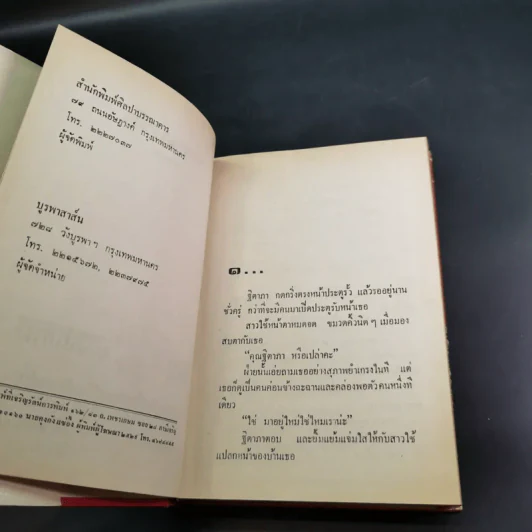 สำนักพิมพ์ศิลปาบรรณาคาร
๗๙ ถนนอัษฎางค์ กรุงเทพมหานคร
โทร. ๒๒๒๗๐๓๗
ผู้จัดพิมพ์
บูรพาสาส์น
๗๒๘ วังบูรพา ฯ กรุงเทพมหานคร
โทร. ๒๒๑๕๖๗๒, ๒๒๓๗๙๗๕
ผู้จัดจำหน่าย
๑...
ฐิตาภา กดกริ่งตรงหน้าประตูรั้ว แล้วรออยู่นาน
ชั่วครู่ กว่าที่จะมีคนมาเปิดประตูรับหน้าเธอ
สาวใช้หน้าตาหมดจด ขมวดคิ้วนิด ๆ เมื่อมอง
สบตากับเธอ
"คุณฐิตาภา หรือเปล่าคะ"
ฝ่ายนั้นเอ่ยถามเธออย่างสุภาพยำเกรงในที แต่
เธอก็ดูเป็นคนค่อนข้างฉะฉานและคล่องพอตัวคนหนึ่งที
เดียว
"ใช่ มาอยู่ใหม่ใช่ไหมเราน่ะ"
ฐิตาภาตอบ และยิ้มแย้มแจ่มใสให้กับสาวใช้
แปลกหน้าของบ้านเธอ